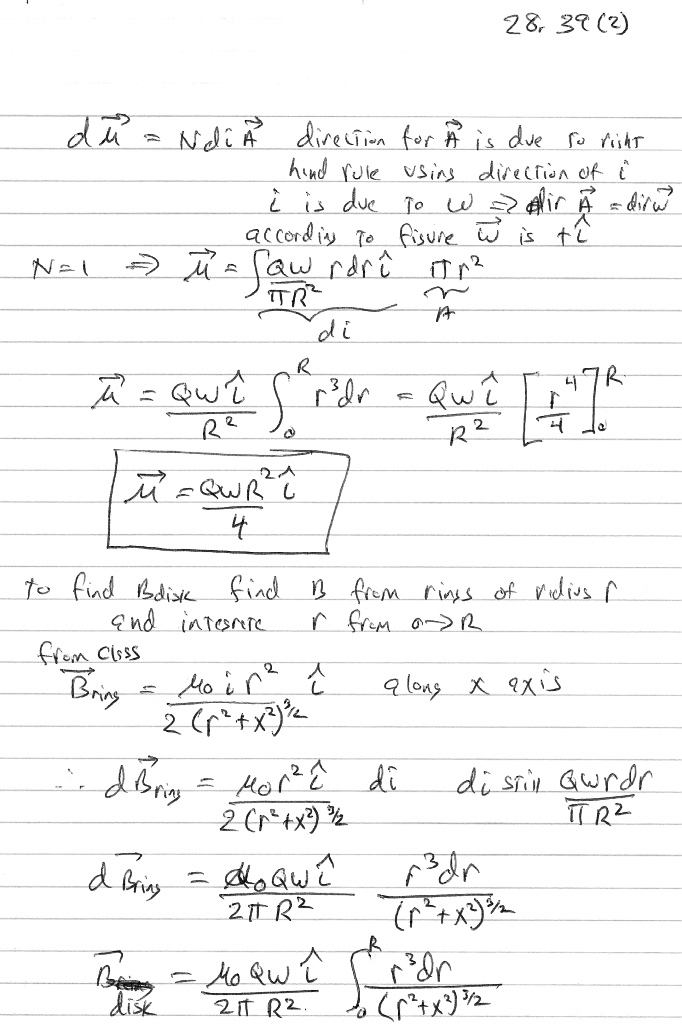 28. 39 (2)
dμ⃗ = N di A⃗ direction for A⃗ is due to right
hand rule using direction of i
i is due to ω ⇒ dir A⃗ = dir ω⃗
according to figure ω⃗ is +î
N=1 ⇒ μ⃗ = ∫ Qω/πR² r dr î πr²
di A
μ⃗ = Qωî/R² ∫₀ᴿ r³dr = Qωî/R² [r⁴/4]₀ᴿ
μ⃗ = QωR²î/4
to find Bdisk find B from rings of radius r
and integrate r from o→R
from class
B⃗ring = μ₀ i r² î / 2(r²+x²)^3/2 along x axis
∴ dB⃗ring = μ₀r² î / 2(r²+x²)^3/2 di di still Qωrdr/πR²
dB⃗ring = μ₀Qωî/2πR² r³dr/(r²+x²)^3/2
B⃗disk = μ₀Qωî/2πR² ∫₀ᴿ r³dr/(r²+x²)^3/2